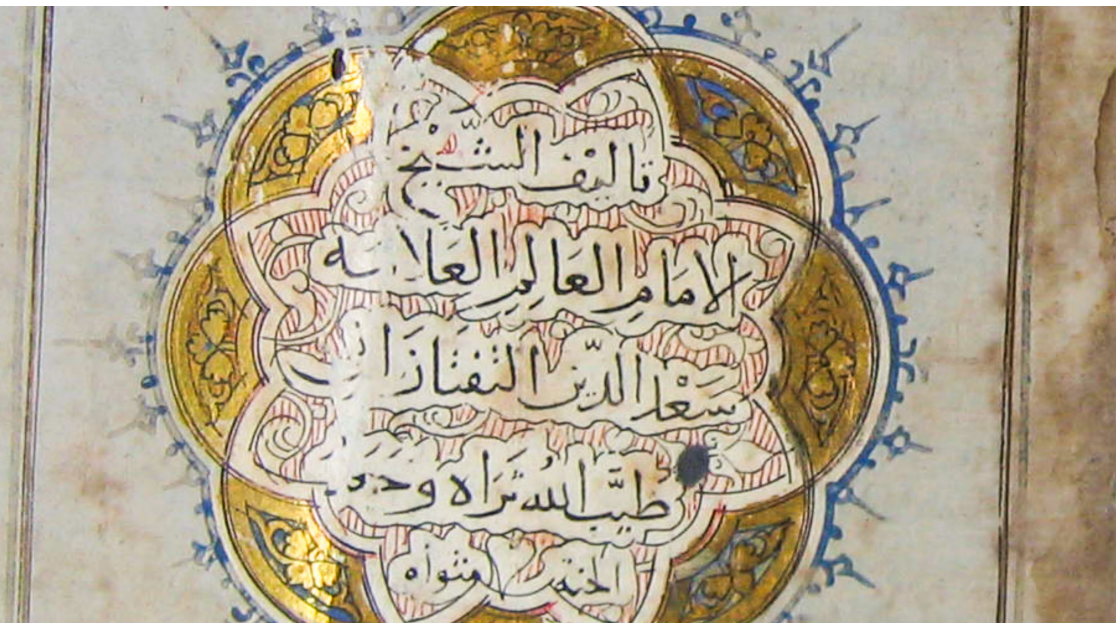 تاليف الشيخ
الامام العالم العلامه
سعد الدين التفتازاني
طيب الله ثراه وجعل
الجنة مثواه